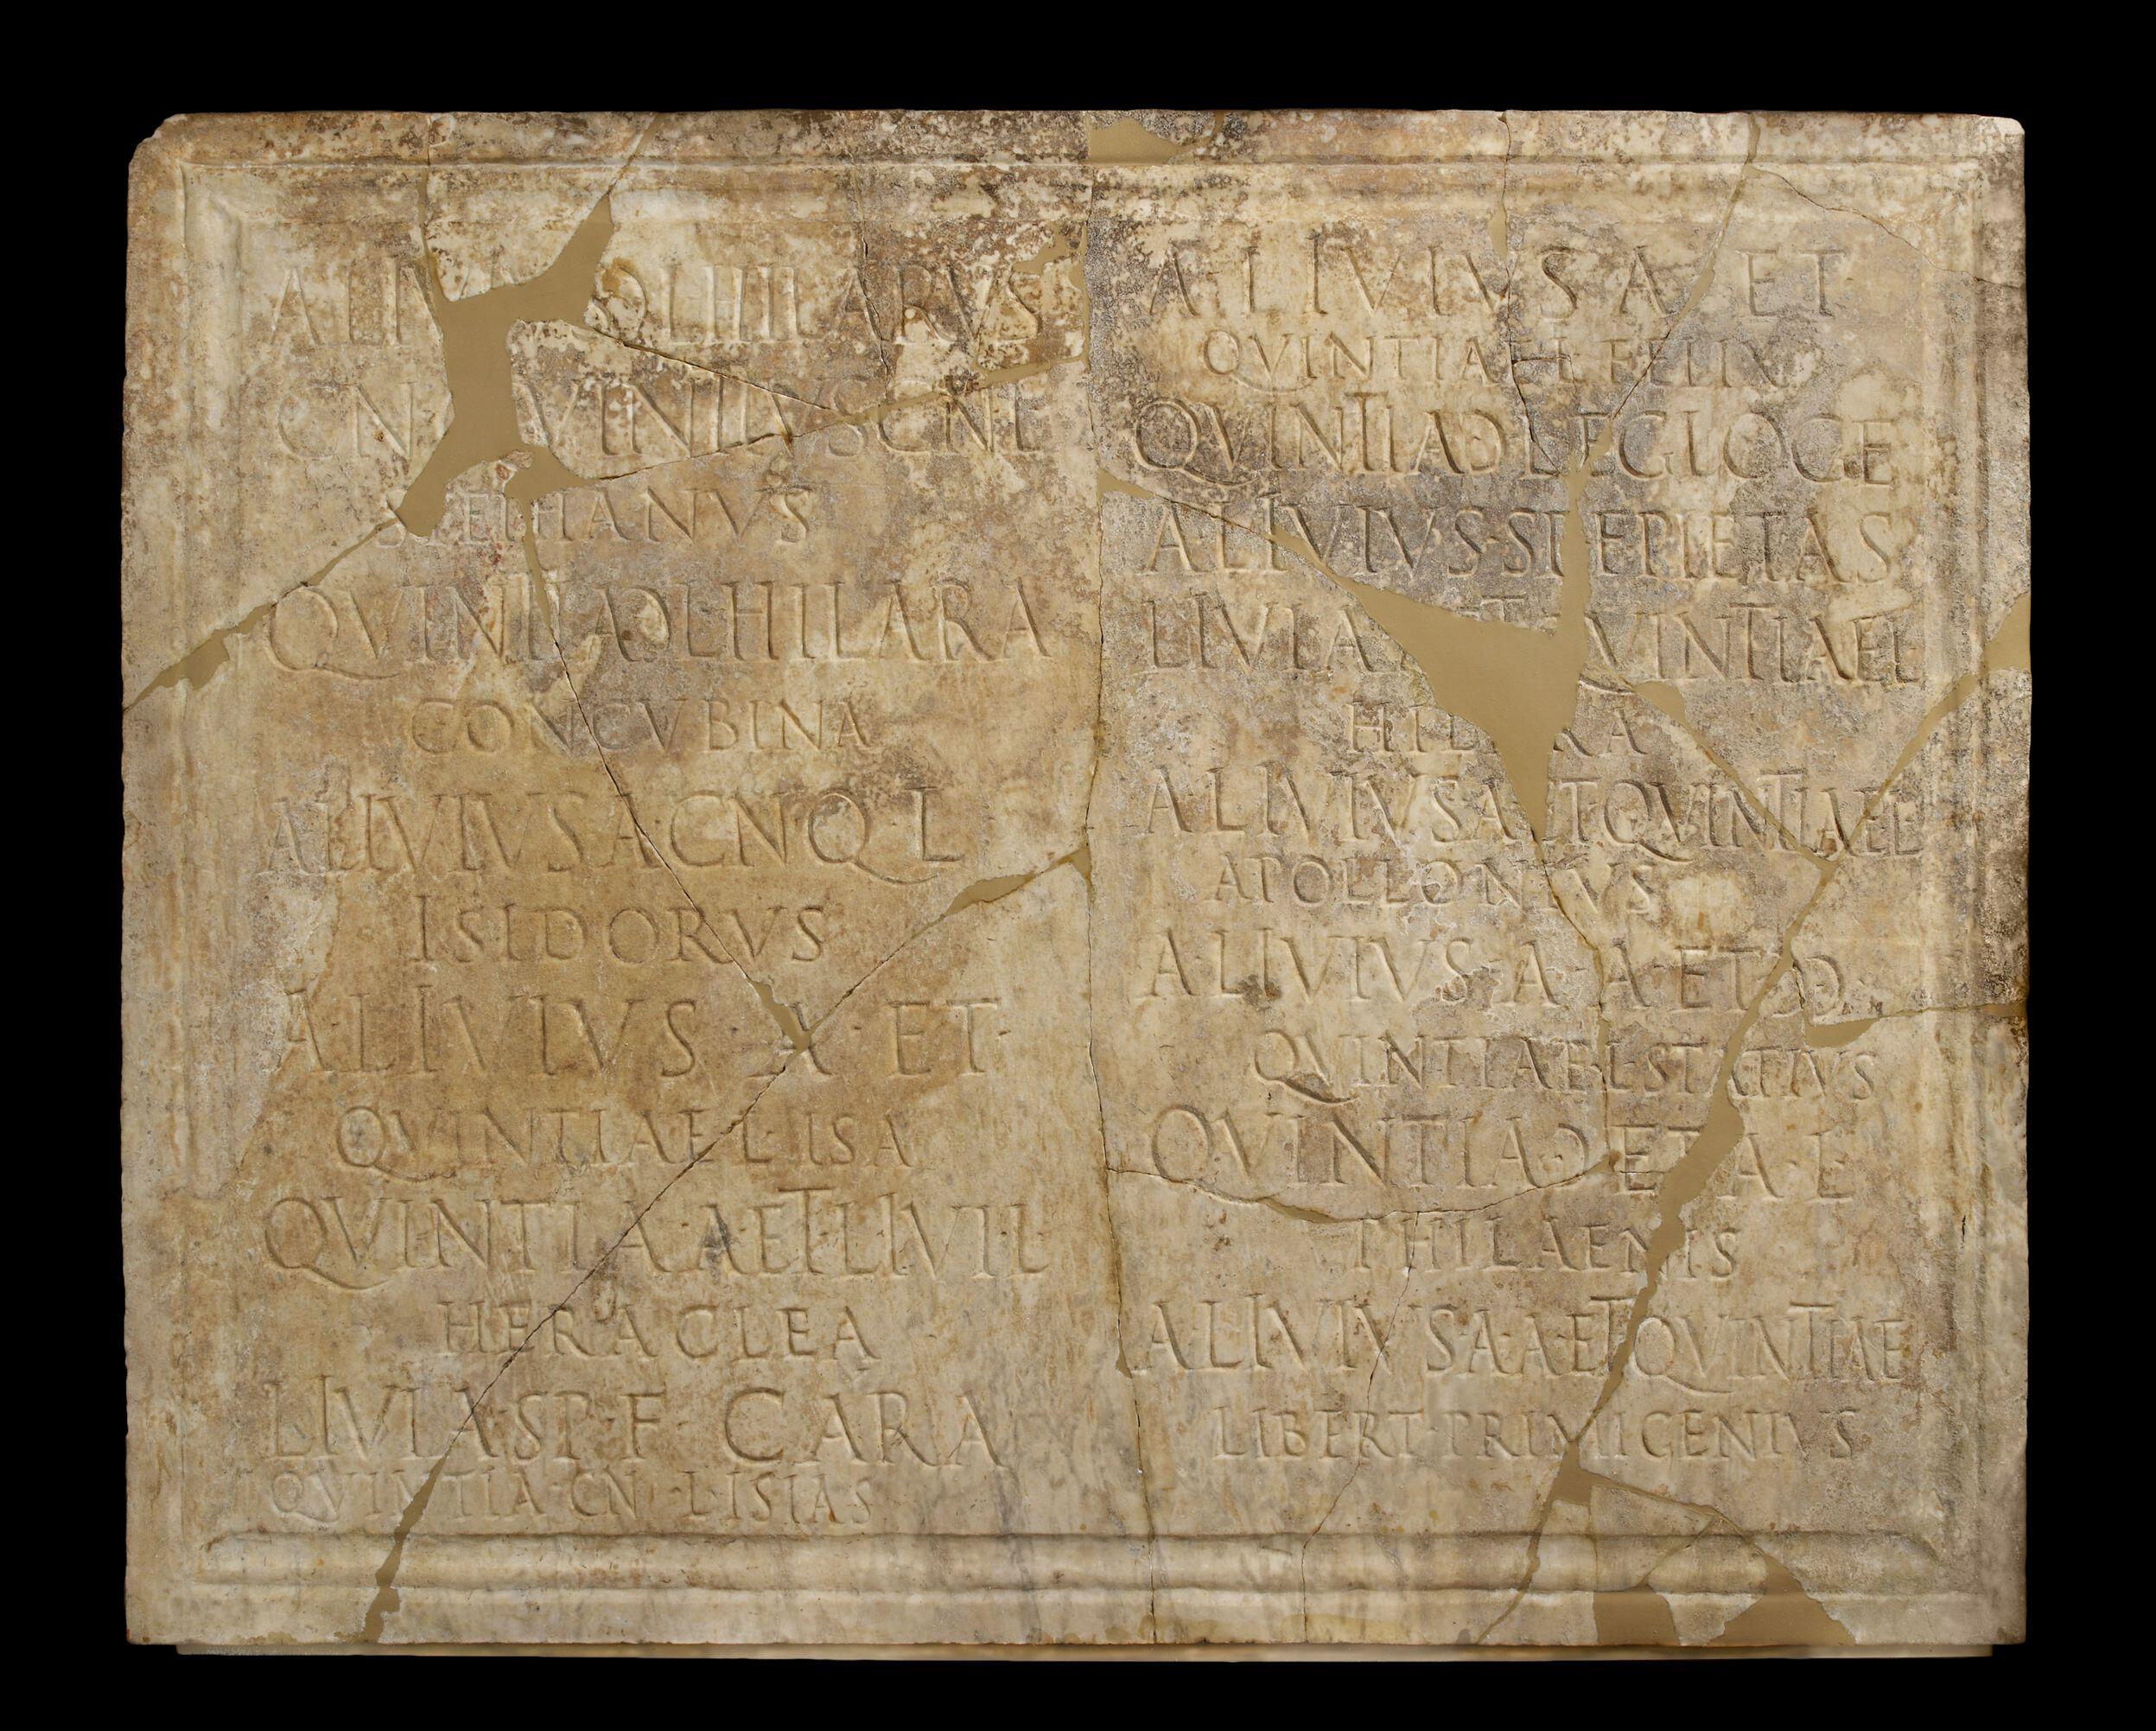 A LIVIVS Q L HILARVS
CN QVINTIVS CN L
STEPHANVS
QVINTIA Ɔ L HILARA
CONCVBINA
A LIVIVS A CN Q L
ISIDORVS
A LIVIVS A ET
QVINTIAE L ISA
QVINTIA A ET LIVI L
HERACLEA
LIVIA SP F CARA
QVINTIA CN L ISIAS
A LIVIVS A ET
QVINTIAE L FELIX
QVINTIA Ɔ L EGLOGE
A LIVIVS SP F PIETAS
LIVIA A ET QVINTIAE L
HILARA
A LIVIVS A ET QVINTIAE L
APOLLONIVS
A LIVIVS A A ET Ɔ
QVINTIAE L STATIVS
QVINTIA Ɔ ET A L
PHILAENIS
A LIVIVS A A ET QVINTIAE
LIBERT PRIMIGENIVS